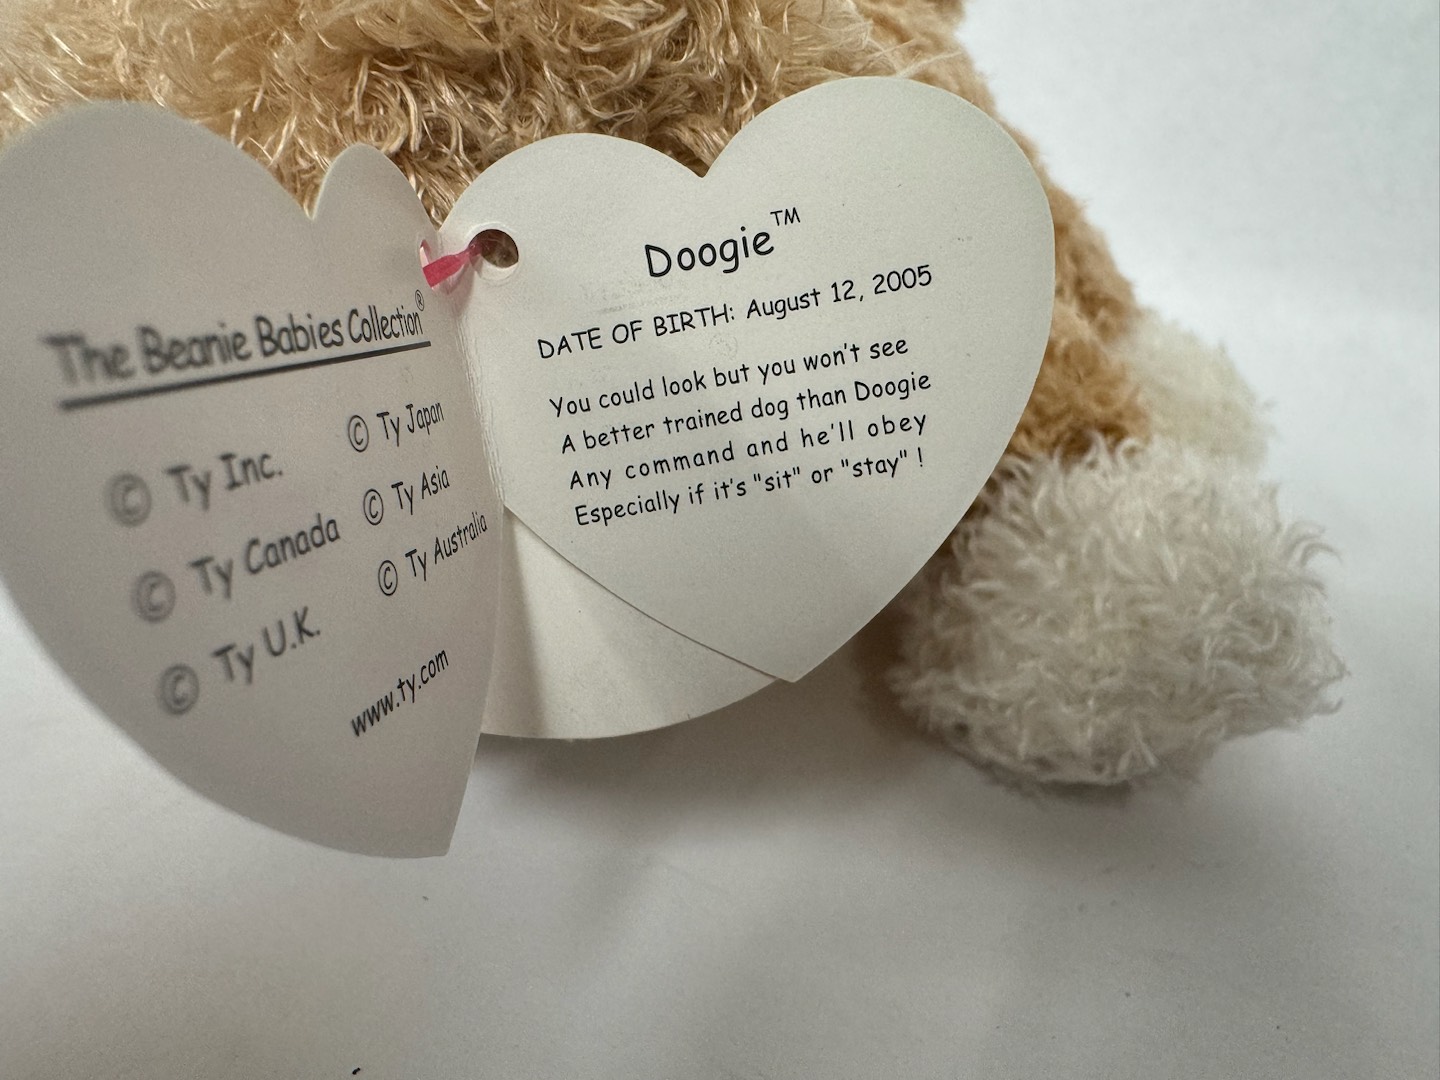 The Beanie Babies Collection®
© Ty Inc.
© Ty Canada
© Ty U.K.
© Ty Japan
© Ty Asia
© Ty Australia
www.ty.com
Doogie™
DATE OF BIRTH: August 12, 2005
You could look but you won't see
A better trained dog than Doogie
Any command and he'll obey
Especially if it's "sit" or "stay" !